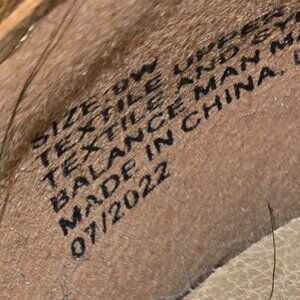 SIZE 8W UPPER
TEXTILE AND SY
TEXTILE MAN MA
BALANCE MAN
MADE IN CHINA.
07/2022